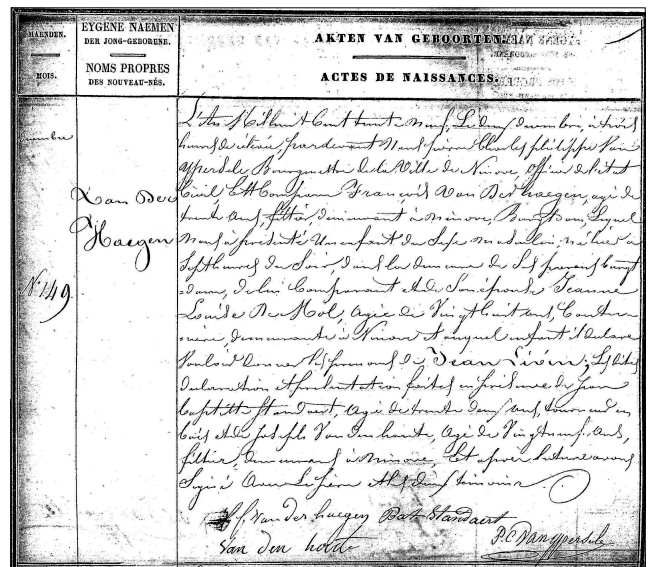 MAENDEN.
MOIS.
EYGENE NAEMEN
DER JONG-GEBORENE.
NOMS PROPRES
DES NOUVEAU-NÉS.
AKTEN VAN GEBOORTEN.
ACTES DE NAISSANCES.
Van Der
Haegen
N° 149
L'An Mil huit Cent trente neuf, Le deux decembre, à trois
heures de relevée, pardevant Nous pierre Charles philippe Van
ypersele Bourgmestre de la Ville de Ninove, officier de l'état
Civil, Est Comparu François Van Der haegen, agé de
trente ans, filtier, demeurant à Ninove, Lequel
Nous a présenté Un enfant du Sexe masculin, né hier à
Sept heures du Soir, dans la demeure de Ses parens
de lui Comparant et de Son épouse Jeanne
Louise De Mol, agée de Vingt huit ans, Coutu
rière, demeurante à Ninove et auquel enfant il déclare
Vouloir donner les prenoms de Jean Livin; Les dites
declaration et présentation faites en présence de Jean
Baptiste Standaert, agé de trente deux ans, tourneur en
bois et de joseph Van den houte, agé de Vingt neuf ans,
filtier, demeurant à Ninove, Et après lecture avons
Signé Avec Le père et les deux temoins
f. van der haegen Bat Standaert
van den houte
P. C. Vanypersele